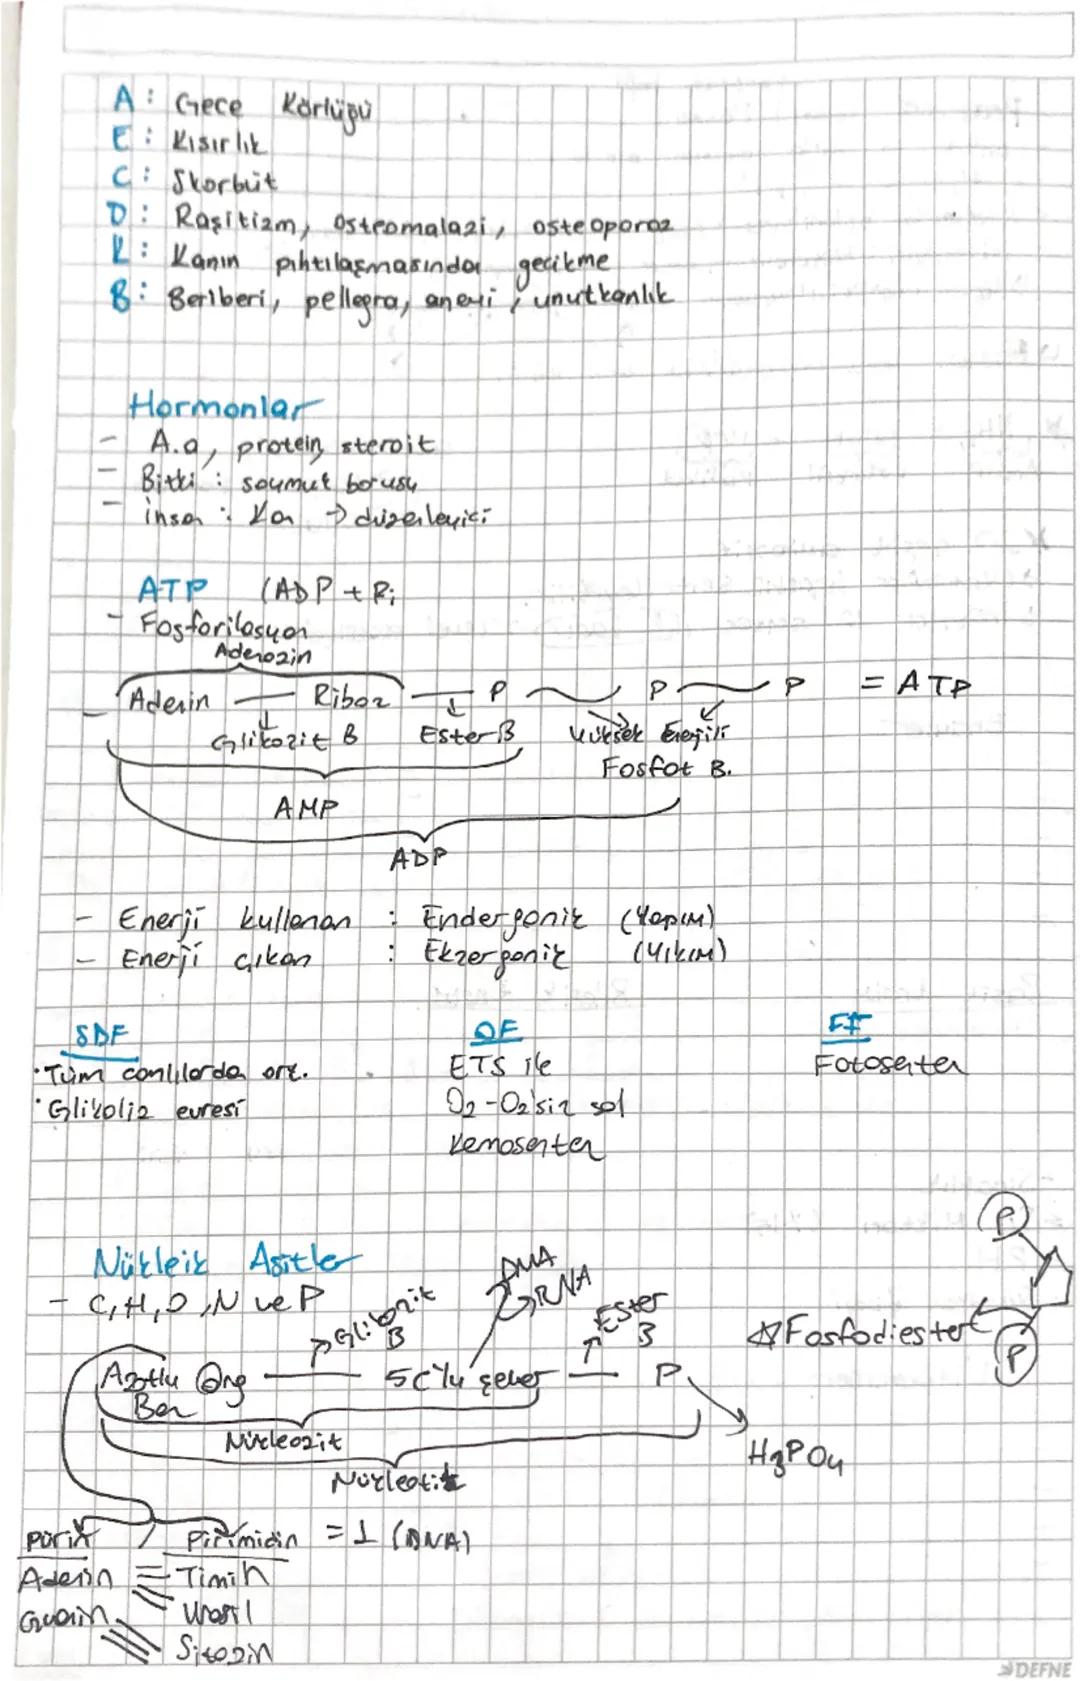 A: Gece Körlüğü
E: Kısırlık
C: Skorbüt
D: Raşitizm, osteomalazi, osteoporoz
K: Kanın pıhtılaşmasında gecikme
B: Beriberi, pellegra, anemi, unutkanlık
Hormonlar
- A.a, protein, steroit
- Bitki: soymuk borusu
- insan: Kan → düzenleyici
ATP (ADP + Pi
- Fosforilasyon
Adenozin
- Adenin — Riboz — P ~ P ~ P = ATP
Glikozit B Ester B Yüksek Enerjili
Fosfat B.
AMP
ADP
- Enerji kullanan : Endergonik (Yapım)
- Enerji çıkan : Ekzergonik (Yıkım)
SDF OF FF
·Tüm canlılarda ort. ETS ile Fotosenten
·Glikoliz evresi O2-O2'siz sol
Kemosenten
Nükleik Asitler
- C, H, O, N ve P
DNA
RNA
Glikozit B
Ester B
☆Fosfodiester
P
P
Azotlu Org — 5C'lu şeker — P
Baz
Nükleozit
Nükleotit
H3PO4
pürin / Pirimidin = 1 (DNA)
Adenin = Timin
Guanin Urasil
Sitozin
DEFNE